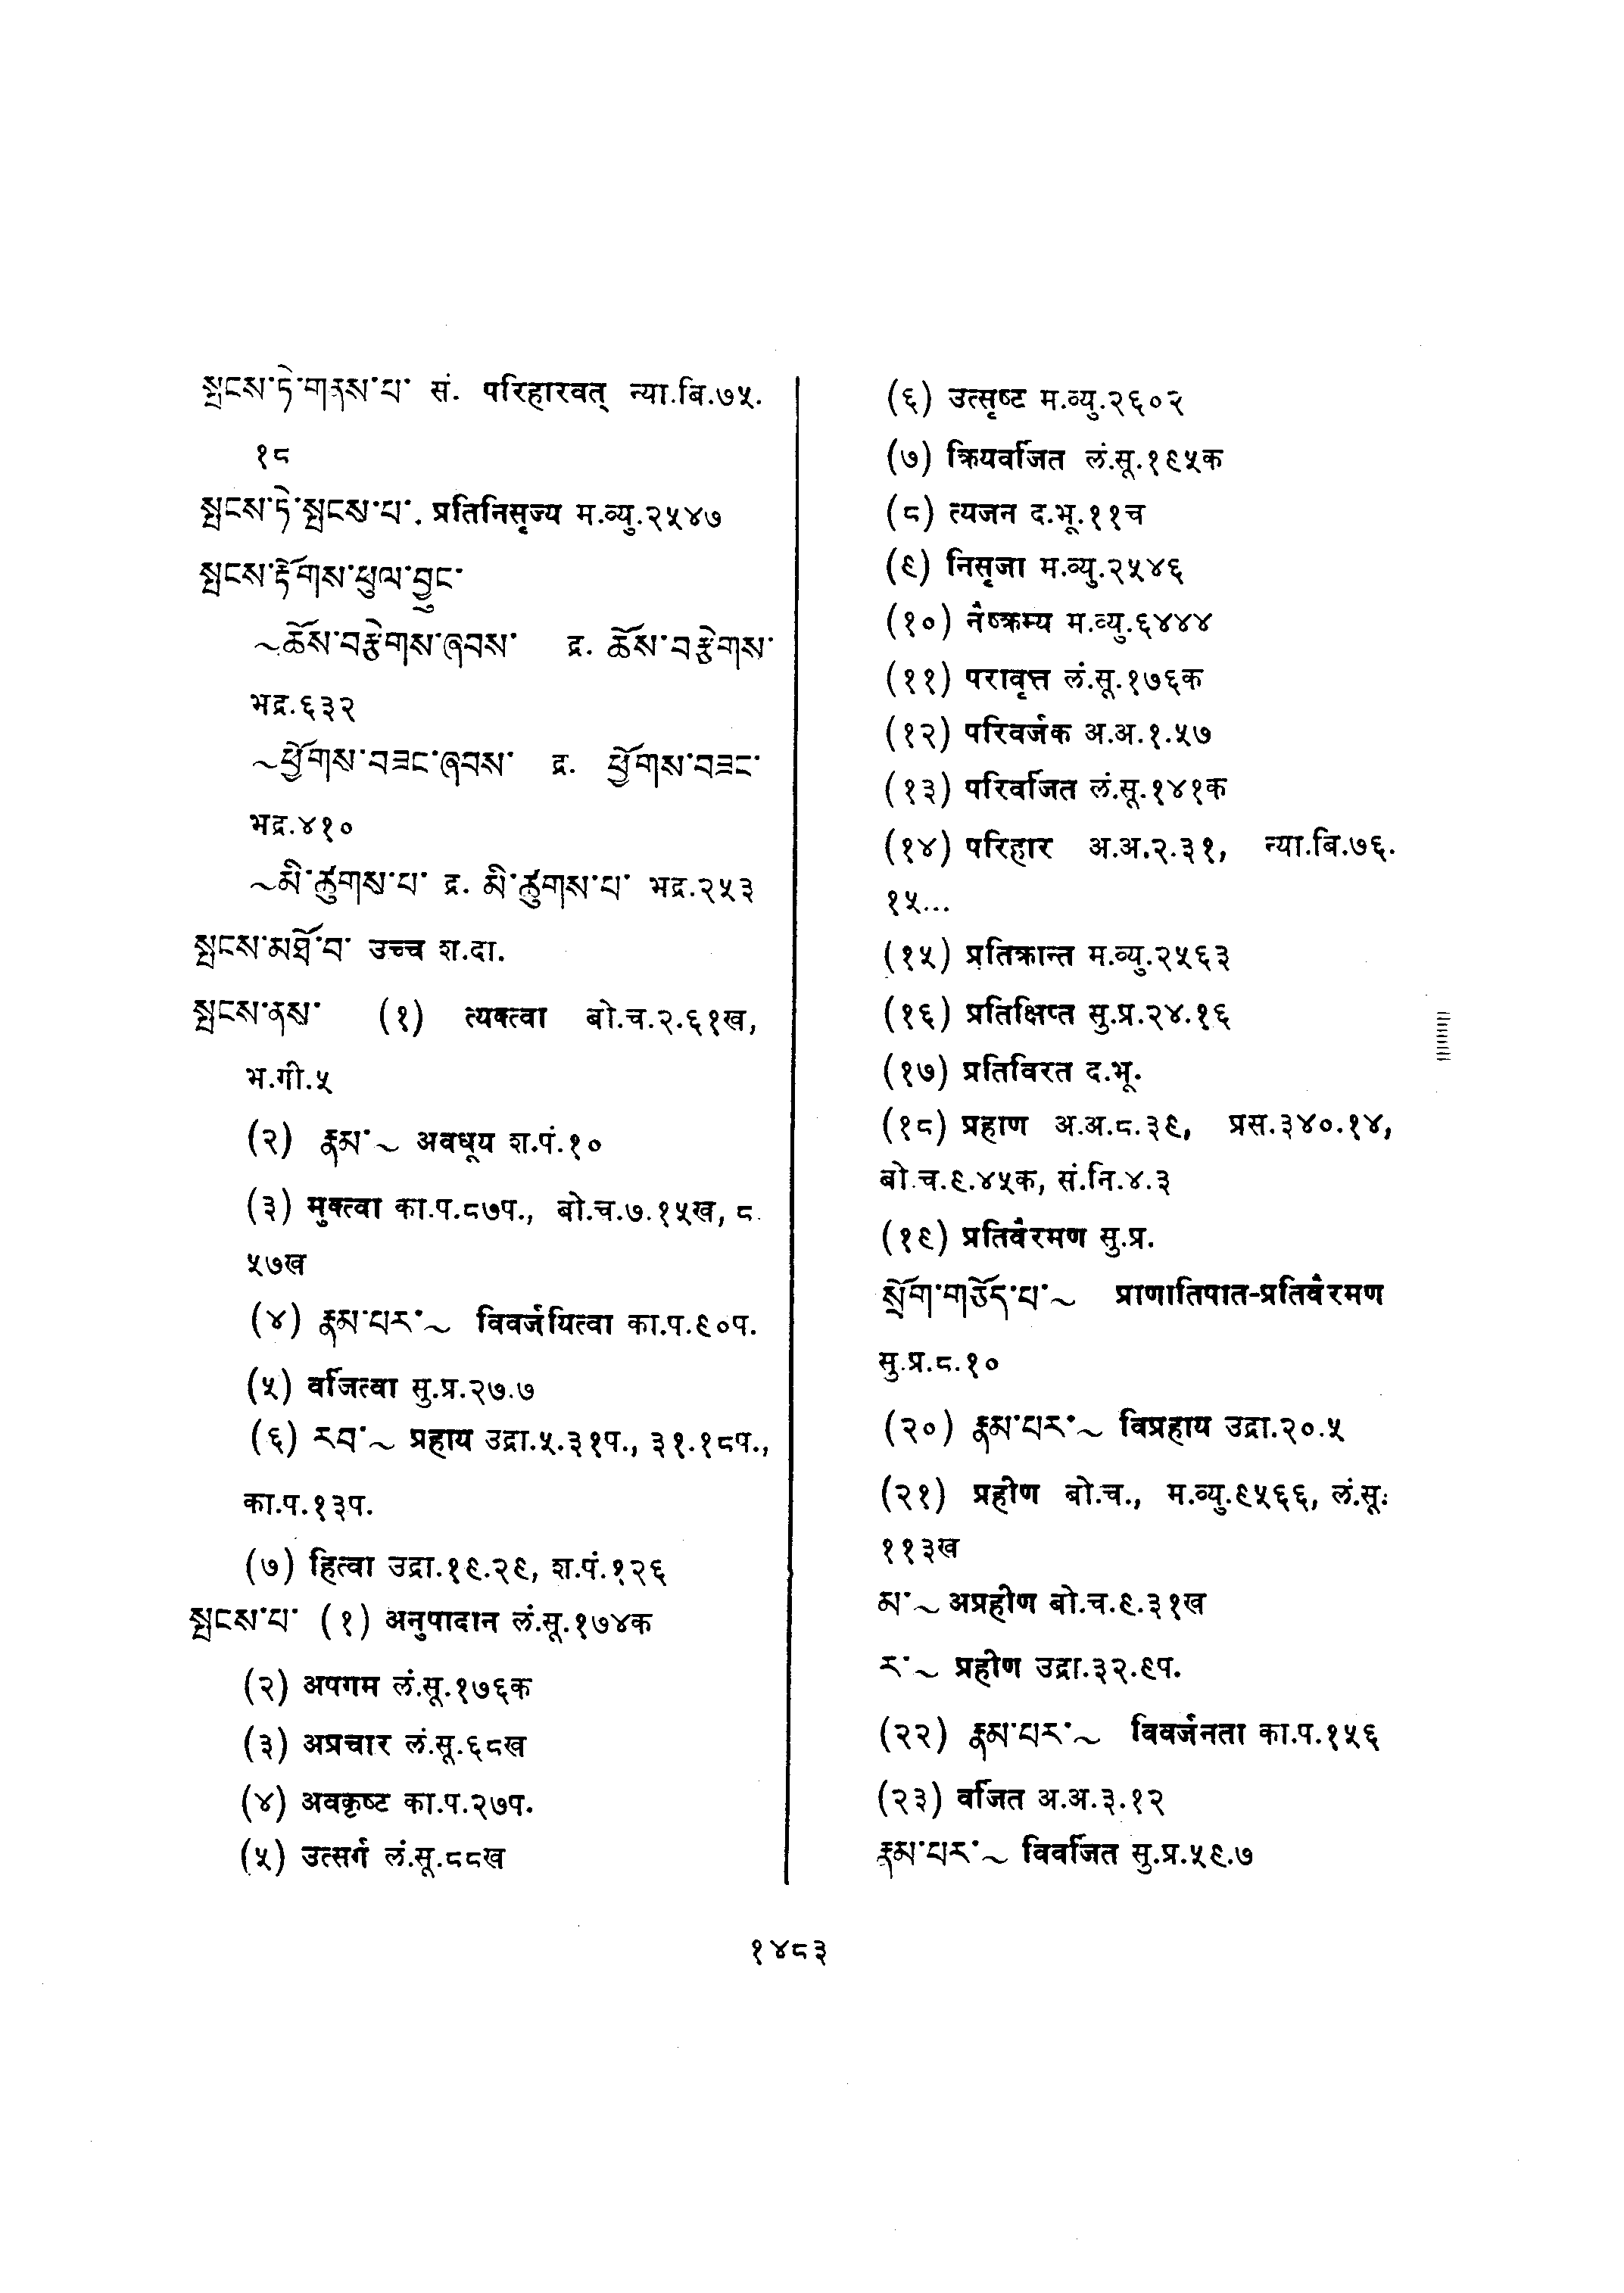 སྤངས་ཏེ་གནས་པ་ सं. परिहारवत् न्या.बि.७५.
१८
སྤངས་ཏེ་སྤངས་པ་. प्रतिनिसृज्य म.व्यु.२५४७
སྤངས་རྟོགས་ཕུལ་བྱུང་
~ཆོས་བརྩེགས་ཞབས་ द्र. ཆོས་བརྩེགས་
भद्र.६३२
~ཕྱོགས་བཟང་ཞབས་ द्र. ཕྱོགས་བཟང་
भद्र.४१०
~མི་ཚུགས་པ་ द्र. མི་ཚུགས་པ་ भद्र.२५३
སྤངས་མཐོ་བ་ उच्च श.दा.
སྤངས་ནས་ (१) त्यक्त्वा बो.च.२.६१ख,
भ.गी.५
(२) རྣམ་~ अवधूय श.पं.१०
(३) मुक्त्वा का.प.८७प., बो.च.७.१५ख, ८.
५७ख
(४) རྣམ་པར་~ विवर्जयित्वा का.प.९०प.
(५) वर्जित्वा सु.प्र.२७.७
(६) རབ་~ प्रहाय उद्रा.५.३१प., ३१.१८प.,
का.प.१३प.
(७) हित्वा उद्रा.१९.२९, श.पं.१२६
སྤངས་པ་ (१) अनुपादान लं.सू.१७४क
(२) अपगम लं.सू.१७६क
(३) अप्रचार लं.सू.६८ख
(४) अवकृष्ट का.प.२७प.
(५) उत्सर्ग लं.सू.८८ख
(६) उत्सृष्ट म.व्यु.२६०२
(७) क्रियवर्जित लं.सू.१९५क
(८) त्यजन द.भू.११च
(९) निसृजा म.व्यु.२५४६
(१०) नैष्क्रम्य म.व्यु.६४४४
(११) परावृत्त लं.सू.१७६क
(१२) परिवर्जक अ.अ.१.५७
(१३) परिवर्जित लं.सू.१४१क
(१४) परिहार अ.अ.२.३१, न्या.बि.७६.
१५...
(१५) प्रतिक्रान्त म.व्यु.२५६३
(१६) प्रतिक्षिप्त सु.प्र.२४.१६
(१७) प्रतिविरत द.भू.
(१८) प्रहाण अ.अ.८.३९, प्रस.३४०.१४,
बो.च.९.४५क, सं.नि.४.३
(१९) प्रतिवैरमण सु.प्र.
སྲོག་གཅོད་པ་~ प्राणातिपात-प्रतिवैरमण
सु.प्र.८.१०
(२०) རྣམ་པར་~ विप्रहाय उद्रा.२०.५
(२१) प्रहीण बो.च., म.व्यु.९५६६, लं.सू:
११३ख
མ་~ अप्रहीण बो.च.९.३१ख
ར་~ प्रहीण उद्रा.३२.९प.
(२२) རྣམ་པར་~ विवर्जनता का.प.१५६
(२३) वर्जित अ.अ.३.१२
རྣམ་པར་~ विवर्जित सु.प्र.५९.७
१४८३